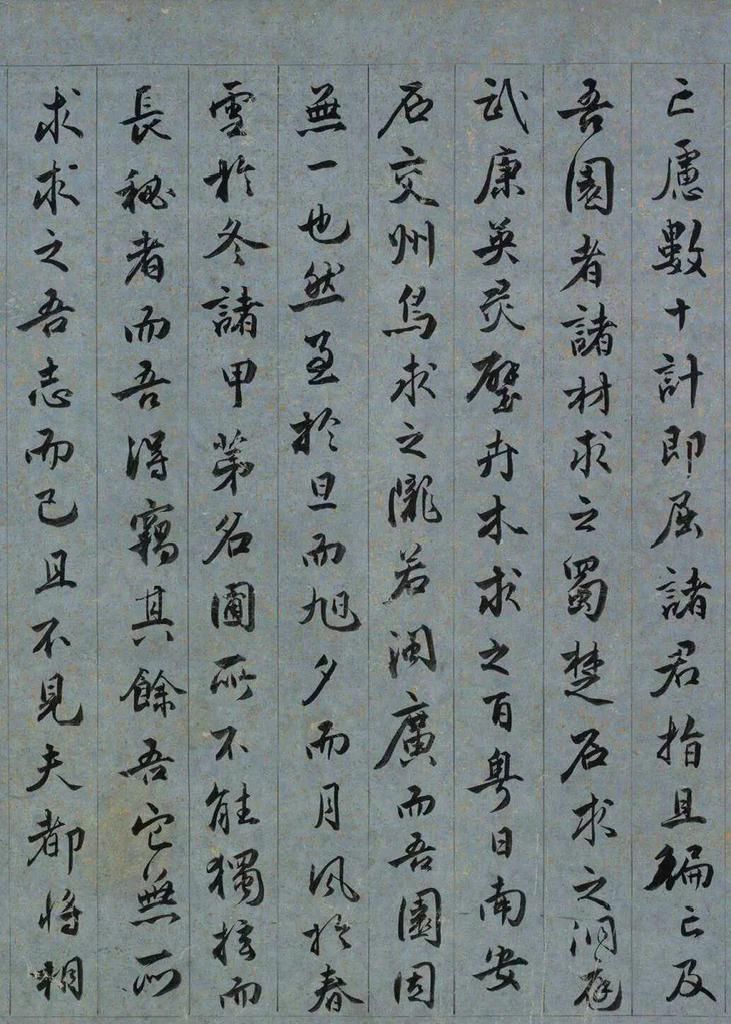 亡慮數十計即屈諸君指且徧亡及
吾園者諸材求之蜀楚石求之洞庭
武康英灵璧卉木求之百粤日南安
石交州鳥求之隴若閩廣而吾園固
無一也然至於旦而旭夕而月風於春
雪於冬諸甲第名圃所不能獨擅而
長秘者而吾得竊其餘吾它無所
求求之吾志而已且不見夫都將相